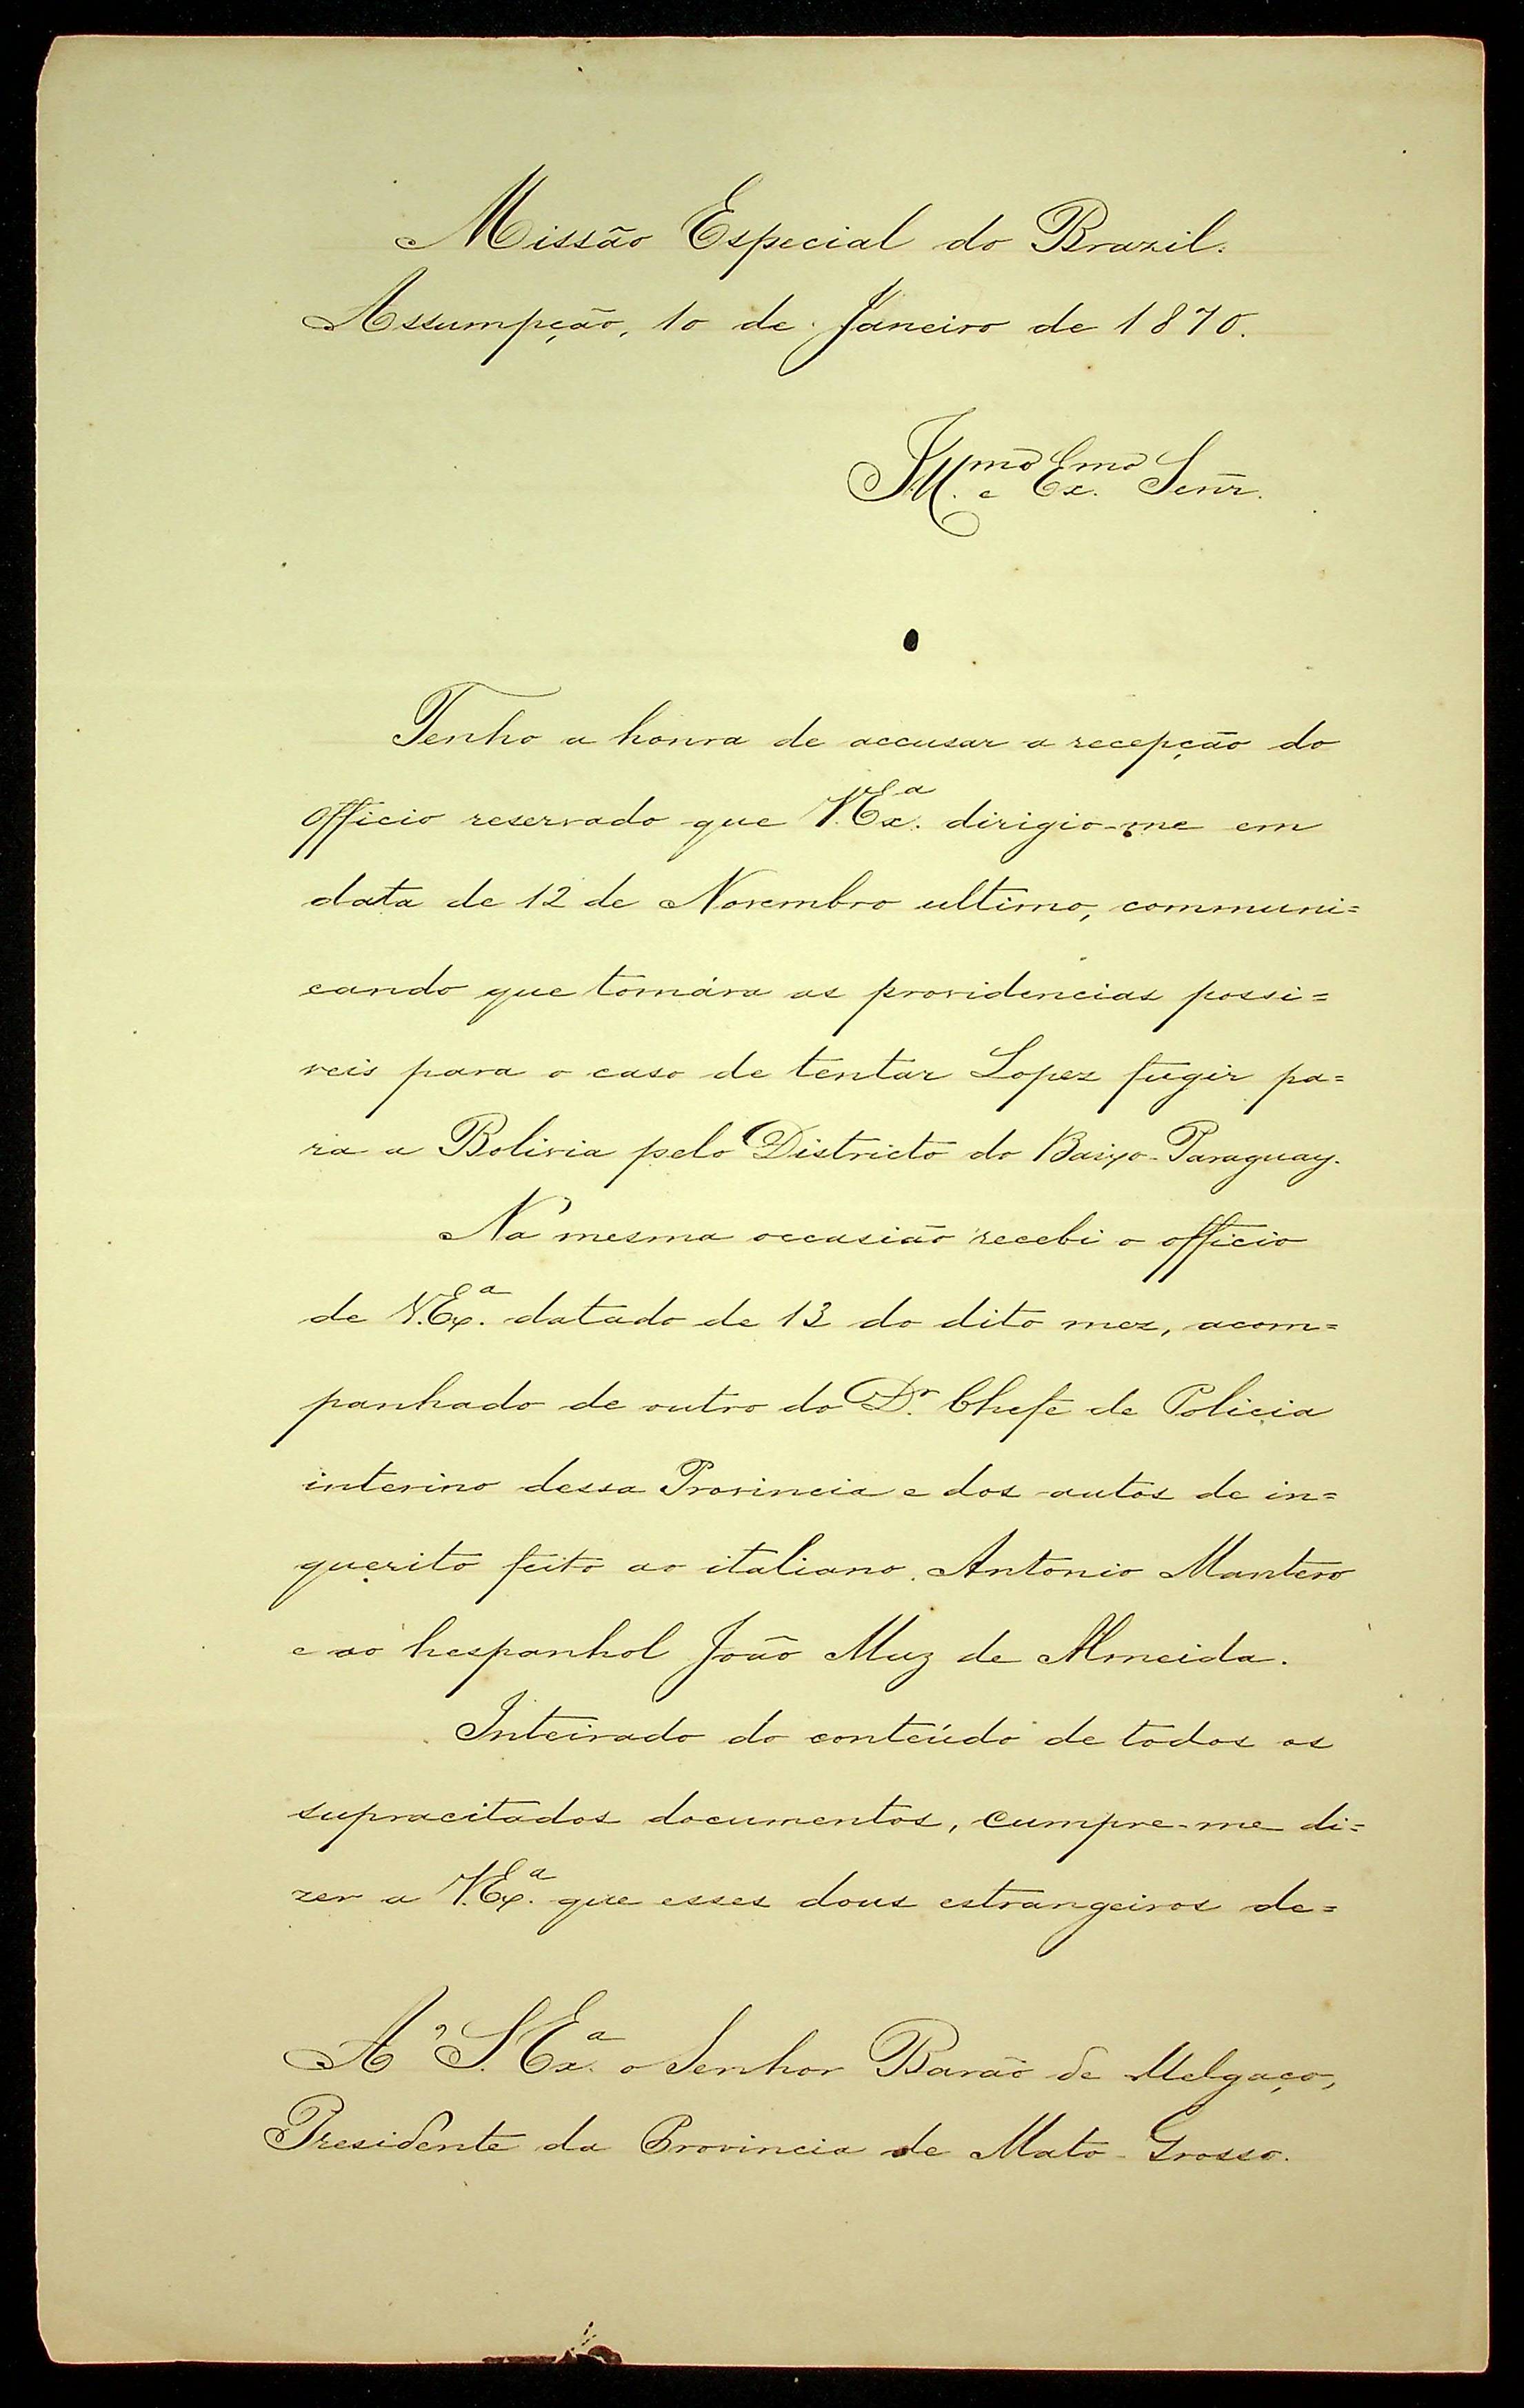 Missão Especial do Brazil.
Assumpção, 10 de Janeiro de 1870.
Ill.mo e Ex.mo Senr.
Tenho a honra de accusar a recepção do
officio reservado que V.Ex.a dirigio-me em
data de 12 de Novembro ultimo, communi=
cando que tomára as providencias possi=
veis para o caso de tentar Lopez fugir pa=
ra a Bolivia pelo Districto do Baixo-Paraguay.
Na mesma occasião recebi o officio
de V.Ex.a datado de 13 do dito mez, acom=
panhado de outro do D.r Chefe de Policia
interino dessa Provincia e dos autos de in=
querito feito ao italiano Antonio Mantero
e ao hespanhol João Muz de Almeida.
Inteirado do conteúdo de todos os
supracitados documentos, cumpre-me di=
zer a V.Ex.a que esses dous estrangeiros de=
A' S.Ex.a o Senhor Barão de Melgaço,
Presidente da Provincia de Mato-Grosso.